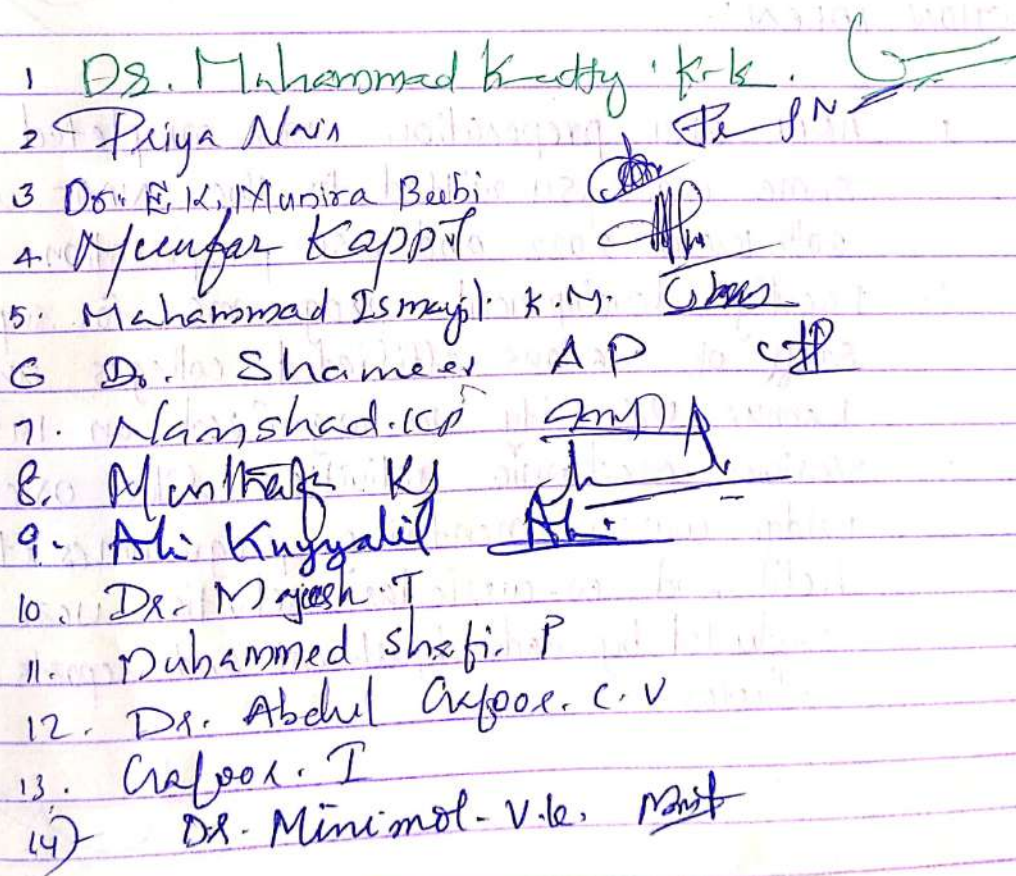 1 Dr. Muhammad Kutty . K.k.
2 Priya Nair
3 Dr. E.K. Munira Beebi
4. Kappil
5. Muhammad Ismayil. K.M.
6 Dr. Shameer AP
7. Namshad. KP
8. Musthafa
9. Ali Kuyyalil Ali
10. Dr. Majeesh T
11. Muhammed Shafi. P
12. Dr. Abdul Gafoor. C.V
13. Gafoor. I
14) Dr. Minimol - V.k.